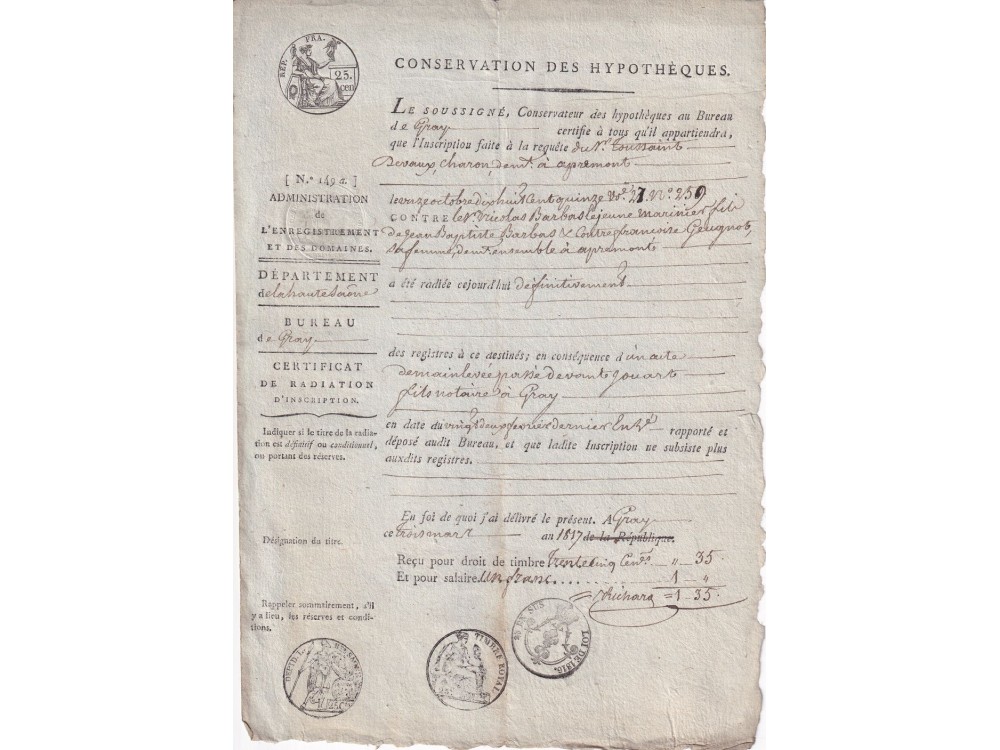 REP. FRA.
25.
cen
CONSERVATION DES HYPOTHÈQUES.
LE SOUSSIGNÉ, Conservateur des hypothèques au Bureau
de Gray certifie à tous qu'il appartiendra,
que l'Inscription faite à la requête du Sr. toussaint
Devaux, charon, demt. à apremont
le onze octobre dix huit cent quinze vol. 27. No. 259
CONTRE le Sr. Nicolas Barbas le jeune marinier fils
de Jean Baptiste Barbas & Contre francoise
sa femme, demt. ensemble à apremont
a été radiée cejourd'hui définitivement
des registres à ce destinés; en conséquence d'un acte
de main levée passé devant Jouart
fils notaire à Gray
en date du vingt deux fevrier dernier En rapporté et
déposé audit Bureau, et que ladite Inscription ne subsiste plus
auxdits registres.
En foi de quoi j'ai délivré le présent. A Gray
ce trois mars an 1817 de la République.
Reçu pour droit de timbre trente cinq Cent. „ 35
Et pour salaire Un franc.... 1 „
Richard = 1 35.
[ N.º 149 a. ]
ADMINISTRATION
de
L'ENREGISTREMENT
ET DES DOMAINES.
DÉPARTEMENT
de la haute Saône
BUREAU
de Gray
CERTIFICAT
DE RADIATION
D'INSCRIPTION.
Indiquer si le titre de la radia-
tion est définitif ou conditionnel,
ou portant des réserves.
Désignation du titre.
Rappeler sommairement, s'il
y a lieu, les réserves et condi-
tions.
TIMBRE ROYAL
LOI DE 1816.